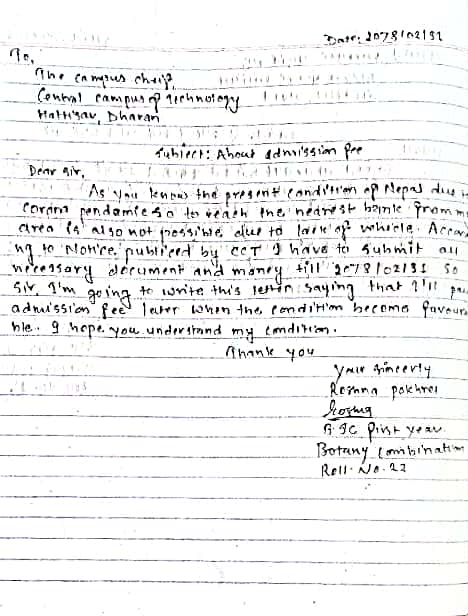 Date: 2078/02/31
To,
The campus cheif,
Central campus of technology
Hattisar, Dharan
Subject: About admission fee
Dear sir,
As you known the present condition of Nepal due to
corona pendamic so to reach the nearest bank from my
area is also not possible due to lack of vehicle. Accor
ng to Notice publiced by CCT I have to submit all
necessary document and money till 2078/02/31 so
sir, I'm going to write this letter saying that I'll pay
admission fee later when the condition become favour
ble. I hope you understand my condition.
Thank you
your sincerly
Roshna pokhrel
B.SC first year
Botany combination
Roll. No. 22